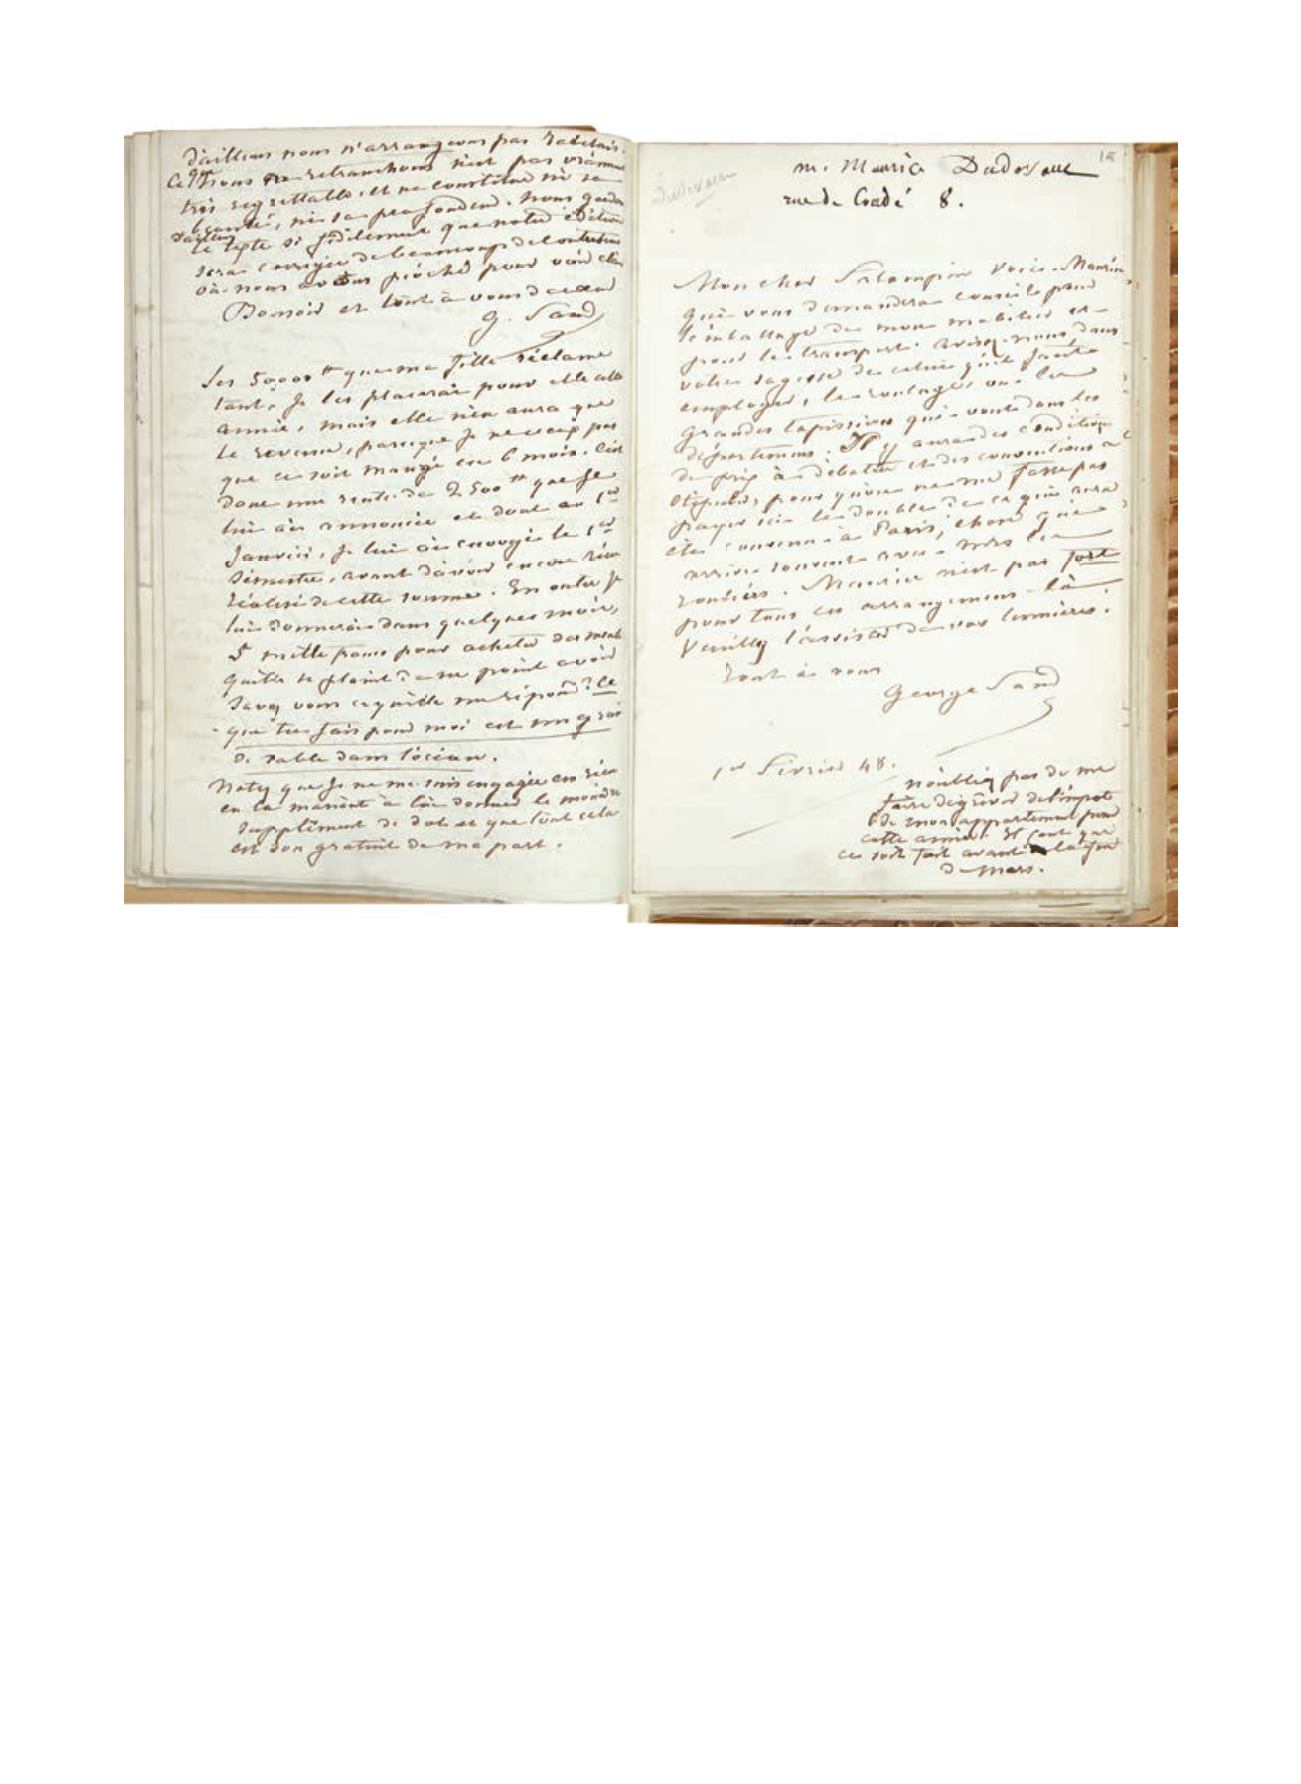 d'ailleurs nous n'arrangeons pas Rabelais.
Ce que nous retranchons n'est pas vraiment
très regrettable, et ne constitue ni sa
beauté, ni sa profondeur. Nous gardons
d'ailleurs
le texte si fidèlement que notre édition
sera corrigée de beaucoup de
où nous avons pioché pour voir clair
Bonsoir et tout à vous de cœur
G. Sand
Les 50,000 ## que ma fille réclame
tant, je les placerai pour elle cette
année, mais elle n'en aura que
le revenu, parceque je ne veux pas
que ce soit mangé en 6 mois. C'est
donc une rente de 2500 ## que je
lui ai annoncée et dont au 1er
Janvier, je lui ai envoyé le 1er
Semestre, avant d'avoir encore rien
réalisé de cette somme. En outre je
lui donnerai dans quelques mois,
5 mille francs pour acheter des meubles
qu'elle se plaint de ne point avoir
Savez vous ce qu'elle me répond? Ce
que tu fais pour moi est un grain
de sable dans l'océan.
Notez que je ne me suis engagée en rien
en la mariant à lui donner le moindre
supplément de dot et que tout cela
est don gratuit de ma part.
18
Dudevant
m. Maurice Dudevant
rue de Condé 8.
Mon cher Falampin voici Maurice
qui vous demandera conseil pour
l'emballage de mon mobilier et
pour le transport. Avisez-nous, dans
votre sagesse de celui qu'il faut
employer, le roulage, ou les
grandes tapissières qui vont dans les
départemens. Il y aura des conditions
de prix à débattre et des conventions à
stipuler, pour qu'on ne me fasse pas
payer ici le double de ce qui sera
été convenu à Paris, chose qui
arrive souvent avec mrs les
rouliers. Maurice n'est pas fort
pour tous ces arrangemens-là
Veuillez l'assister de vos lumières.
Tout à vous
George Sand
1er Février 48.
n'oubliez pas de me
faire dégrever de l'impôt
de mon appartement pour
cette année. Il faut que
ce soit fait avant la fin
de Mars.